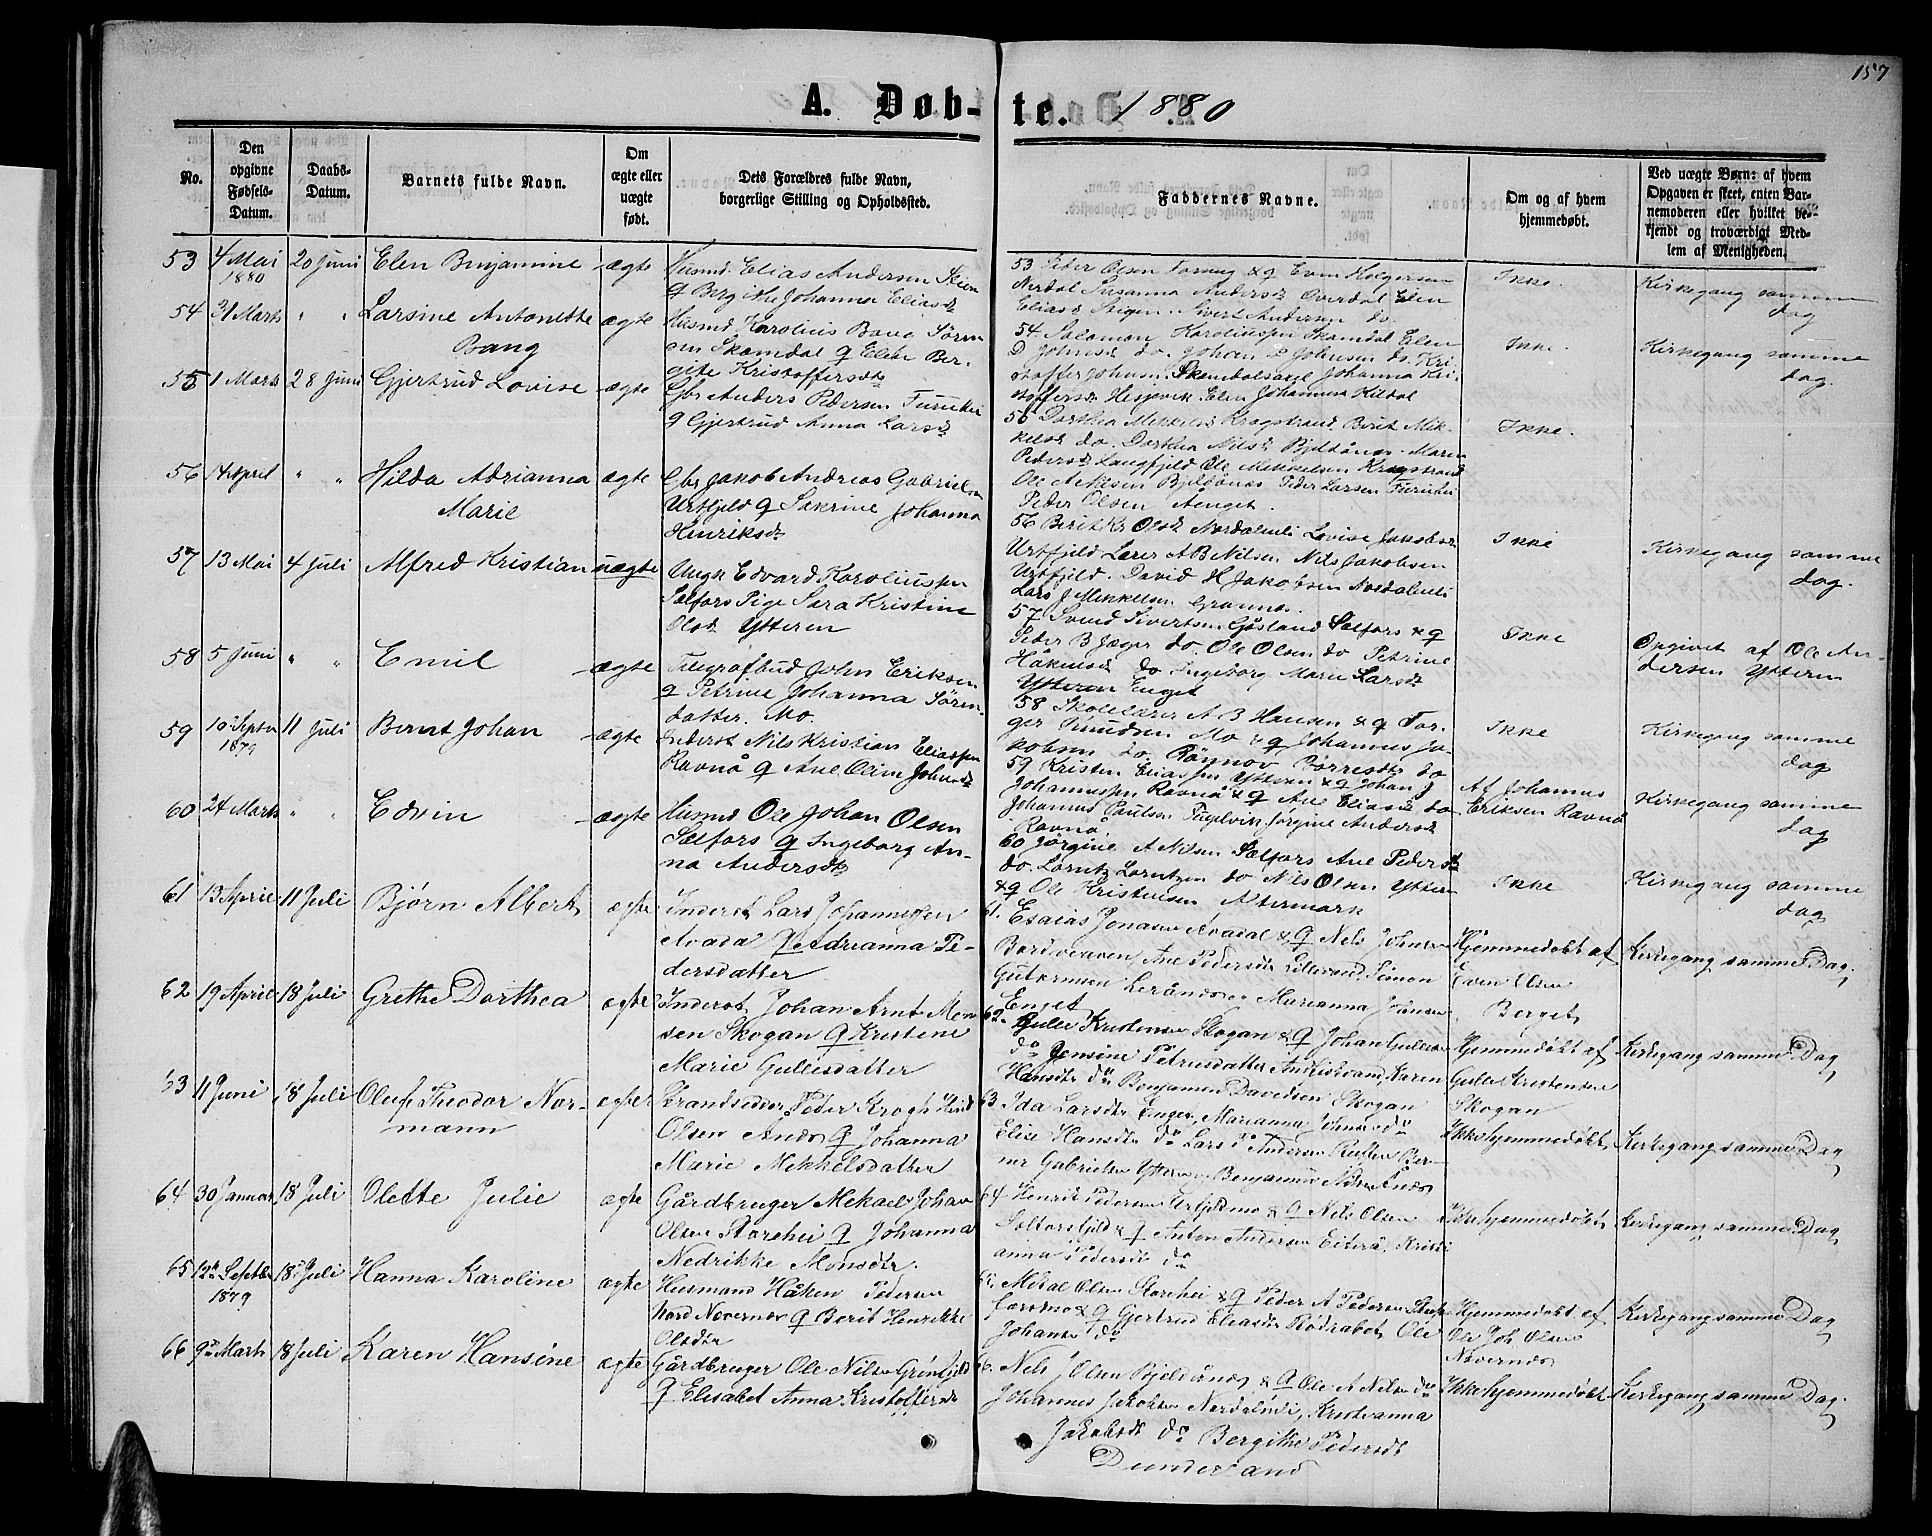 157
A. Døb-te. 1880
No.
Den opgivne Fødsels-Datum.
Daabs-Datum.
Barnets fulde Navn.
Om ægte eller uægte født.
Dets Forældres fulde Navn, borgerlige Stilling og Opholdssted.
Faddernes Navne.
Om og af hvem hjemmedøbt.
Ved uægte Børn: af hvem Opgaven er skeet, enten Barnemoderen eller hvilket bekjendt og troværdigt Medlem af Menigheden.
53 4 Mai 1880 20 Juni Elen Benjamine ægte
Husmd. Elias Andersen
& Bergithe Johanna Eliasd
53 Peder Olsen & q Even Holgersen
Susanna Andersd Overdal Elen
Eliasd Sivert Andersen do.
Ikke.
Kirkegang samme
dag
54 21 Marts " " Larsine Antonette ægte
Bang
Husmd Karolius Bang Søren
sen Skamdal & Elen Ber-
gete Kristoffersdt
54. Salomon Karoliussen Skamdal Elen
D Johnsd do. Johan L Johnsen do. Kri-
stoffer Johnsen Johanna Kri-
stoffersd Hesjevik Elen Johanna Kildal
Ikke
Kirkegang samme
dag.
55 1 Marts 28 Juni Gjertrud Lovise ægte
Gbr Anders Pedersen Furuhei
& Gjertrud Anna Larsd
55 Dorthea Mikkelsd Kragstrand Berit Mik-
kelsd do. Dorthea Nilsd Bjeldånes. Maren
Pedersd Langfjeld Ole Mikkelsen Kragstrand
Ole A Nilsen Bjeldånes Peder Larsen Furuhei
Peder Olsen Aenget.
Ikke.
56 14 April " " Hilda Adrianna ægte
Marie
Gbr Jakob Andreas Gabrielsen
Urtfjeld & Sakrine Johanna
Henriksdt
56 Berit Kr Olsd Nordalmli Lovise Jakobsd
Urtfjeld Lærer A B Nilsen Nils Jakobsen
Urtfjeld. David H Jakobsen Nordalmli
Lars J Mikkelsen Grannes.
Ikke
Kirkegang samme
dag.
57 13 Mai 4 Juli Alfred Kristian uægte
Ungk Edvard Karoliussen
Selfors Pige Sara Kristine
Olsd Ytteren
57 Svend Sivertsen Gåsland Selfors & q
Peder B Jæger do. Ole Olsen do Petrine
Håkensd do Ingeborg Marie Larsd
Ytteren Enget
Ikke
Opgivet af Ole An-
dersen Ytteren
58 5 Juni " " Emil ægte
Telegrafbud John Eriksen
& Petrine Johanna Sören-
datter. Mo.
58 Skolelærer A B Hansen & q Tor-
ger Knudsen Mo & q Johannes Ja-
kobsen do. Rönnov Börresdt do
Ikke
Kirkegang samme
dag
59 10 Septbr 1879 11 Juli Bernt Johan ægte
Inderst Nils Kristian Eliassen
Ravnå & Ane Oline Johnsd
59 Kristen Eliassen Ytteren & q Johan J
Johannessen Ravnå & q Ane Eliasd do
Johannes Paulsen Fuglvik Jorgine Andersdt
Ravnå.
Af Johannes
Eriksen Ravnå
Kirkegang samme
dag
60 24 Marts " " Edvin ægte
Husmd Ole Johan Olsen
Selfors & Ingeborg An-
na Andersdt
60 Jörgine A Nilsen Selfors Ane Pedersdt
do. Lorntz Lorntzen do Nils Olsen Ytteren
& q Ole Kristensen Altermark
Ikke
Kirkegang samme
dag
61 13 April 11 Juli Bjørn Albert ægte
Inderst Lars Johannesen
Avadal & Adrianna Pe-
dersdatter
61. Esaias Jonasen Avadal & q Nils Johnsen
Bordvedaven, Ane Pedersdtr Lillevand, Simon
Gutormsen Leråndos Marianna Johnsen
Enget
Hjemmedøbt af
Even Olsen
Berget,
Kirkegang samme Dag.
62 19 April 18 Juli Grethe Dorthea ægte
Inderst Johan Arnt Mon
sen Skogan & Kristine
Marie Gullesdatter
62. Gulle Kristensen Skogan & q Johan Gullesen
do Jensine Petrusdatter Andfiskvand, Karen
Hansdtr do Benjamin Davidsen Skogan
Hjemmedøbt af
Gulle Kristensen
Skogan
Kirkegang samme Dag,
63 11 Juni 18 Juli Oluf Theodor Nor- ægte
mann
Strandsidder Peder Krogh Hind
Olsen Andås & Johanna
Marie Mikkelsdatter
63 Ida Larsdtr Enget, Marianna Johnsen do
Elise Hansdtr do Lars P Andersen Ber-
ner Gabrielsen Ytteren Benjamin Andås
Ikke hjemmedøbt,
Kirkegang samme Dag
64 30 Januar 18 Juli Olette Julie ægte
Gårdbruger Mekael Johan
Olsen Storehei & Johanna
Nedrikke Monsdtr.
64 Henrik Pedersen Urtfjeldmo & q Nils Olsen
Selforsfjeld & q Anton Andersen Eiterå, Kristi
anna Pedersdt do
Ikke hjemmedøbt
Kirkegang samme Dag,
65 12te Septbr 1879 18 Juli Hanna Karoline ægte
Husmand Håken Pedersen
Nord Nævernes & Berit Henrikke
Olsdtr
65. Mikal Olsen Storehei & q Peder A Pedersen
& q Gjertrud Eliasdtr Rödrabet, Ole
Johansen do
Hjemmedøbt af
Ole Joh Olsen
Nævernes
Kirkegang samme Dag
66 9de Marts 18 Juli Karen Hansine ægte
Gårdbruger Ole Nilsen Grönfjeld
& Elisabet Anna Kristoffersdt
66. Nels Olsen Bjeldånes & q Ole A Nilsen do
Johannes Jakobsen Nordalmli, Kristianna
Jakobsdt do Bergithe Pedersdt
Dunderland
Ikke hjemmedøbt
Kirkegang samme Dag.